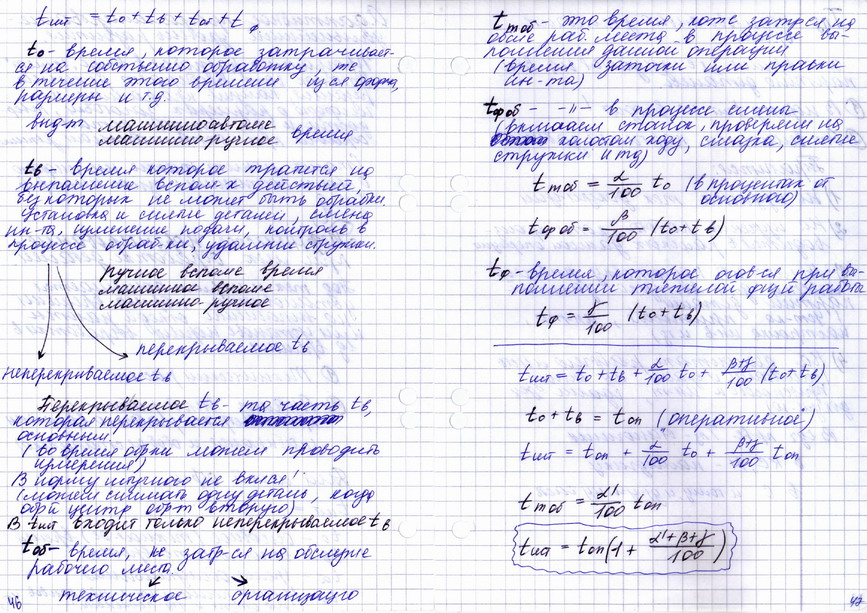 tшт = to + tв + tоб + tф
to - время, которое затрачивает-
ся на собственно обработку, те
в течение этого времени ся форма,
размеры и т.д.
вид-т машинноавтоме
машинноручное время
tв - время которое тратится на
выполнение вспом-х действий,
без которых не может быть обрабки.
Установка и снятие деталей, смена
ин-та, изменение подачи, контроль в
процессе обраб-ки, удаление стружки.
Ручное вспоме время
машинное вспоме
машинно-ручное
перекрываемое tв
неперекрываемое tв
Перекрываемое tв - та часть tв,
которая перекрывается
основным.
(во время обки можем проводить
измерения)
В норму штучного не вклся!
(можем снимать одну деталь, когда
обрй центр обрт вторую)
В tшт входит только неперекрываемое tв
tоб - время, ке затр-ся на обслуже
рабочего места.
техническое организацио
46
tтоб - это время, коте затрся на
обсле раб. места в процессе вы-
полнения данной операции
(время заточки или правки
ин-та)
tфоб - -"- в процессе смены
(включаем станок, проверяем на
холостом ходу, смазка, снятие
стружки и тд)
tтоб = α/100 to (в процентах от
основного)
tфоб = β/100 (to + tв)
tф - время, которое огов-ся при вы-
полнении тяжелой фцй работы
tф = γ/100 (to + tв)
tшт = to + tв + α/100 to + β+γ/100 (to + tв)
to + tв = tоп (оперативное)
tшт = tоп + α/100 to + β+γ/100 tоп
tтоб = α'/100 tоп
tшт = tоп (1 + α'+β+γ/100)
47